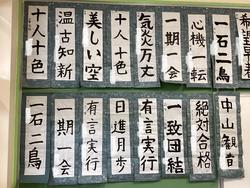 一石二鳥
心機一転
一期一会
気炎万丈
十人十色
美しい空
温古知新
十人十色
中山毅
絶対合格
一致団結
有言実行
日進月歩
有言実行
一期一会
一石二鳥